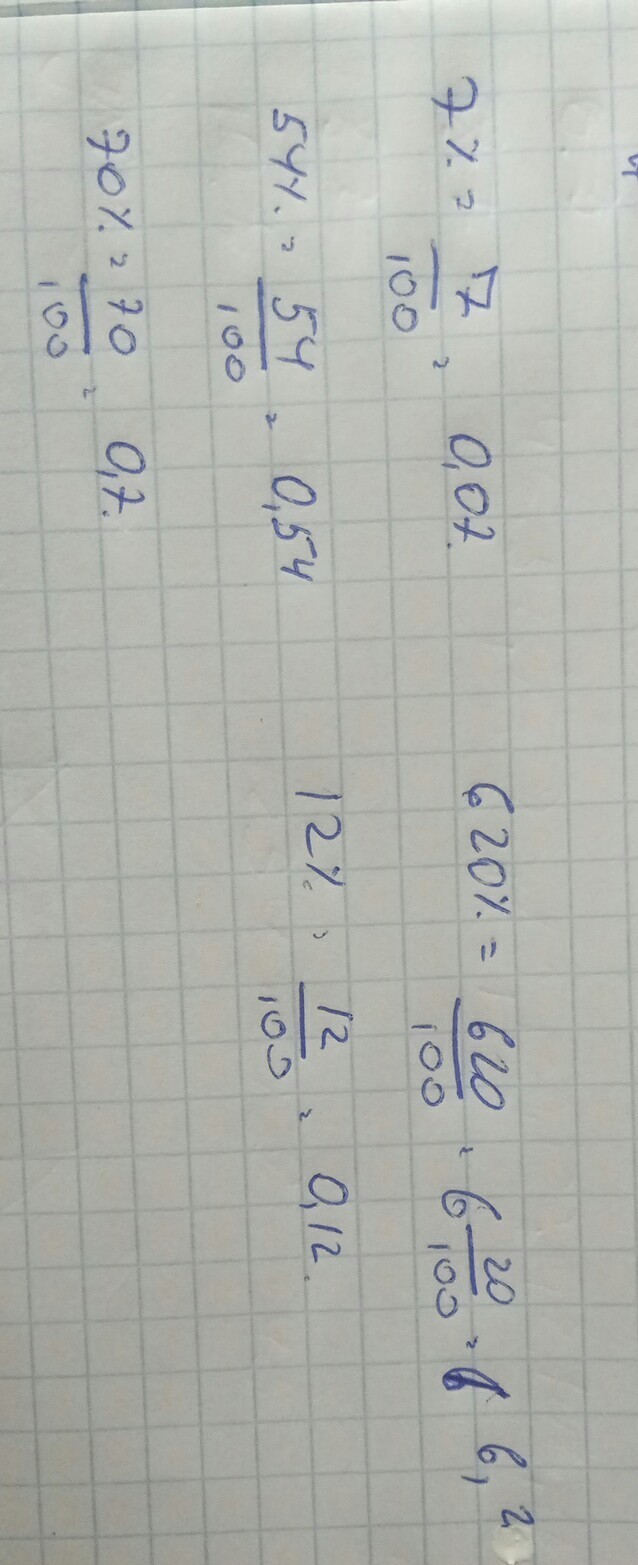 7% = 7/100 = 0,07. 620% = 620/100 = 6 20/100 = 6,2
54% = 54/100 = 0,54 12% = 12/100 = 0,12.
70% = 70/100 = 0,7.